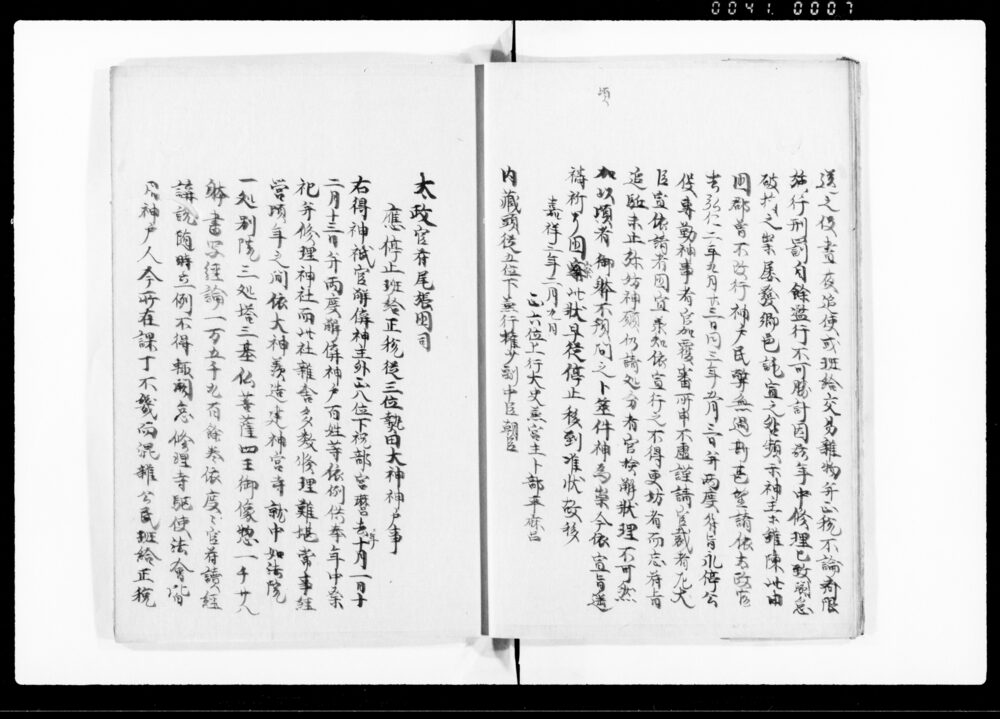 0041.0007
頃
送之使晝夜追使或班給交易雑物并正税不論斎限
猛行刑罰自餘濫行不可勝計因茲年中修理已致闕怠
破損之祟屡發郷邑託宣之告頻示神主等雖陳此由
国郡曽不改行神戸民弊無過斯甚望請依太政官
去弘仁二年九月廿三日同三年五月三日并両度符旨永停公
役専勤神事者官加覆審所申不虚謹請官裁者右大
臣宣依請者国宜承知依宣行之不得更妨者而忘符旨
追駈未止弥妨神願仍請処分者官検解状理不可然
加以頃者御躰不預問之卜筮件神為祟今依宣旨遣
祷祈了国察此状早従停止移到准状故移
嘉祥三年二月九日
正六位上行大史兼宮主卜部平麻呂
内蔵頭従五位下兼行権少副中臣朝臣
太政官符尾張国司
應停止班給正税従三位熱田大神神戸事
右得神祇官解偁神主外正八位下祝部宮麿去年十月一日十
二月十三日并両度解偁神戸百姓等依例供奉年中祭
祀并修理神社而此社雑舎多数修理難堪常事経
営頃年之間依大神義造建神宮寺就中如法院
一処別院三処塔三基仏菩薩四王御像惣一千廿八
躰書写経論一万五千九百餘巻依度々官符讀経
講説随時立例不得輙闕怠修理寺駈使法會皆
用神戸人今所在課丁不幾而混雑公民班給正税